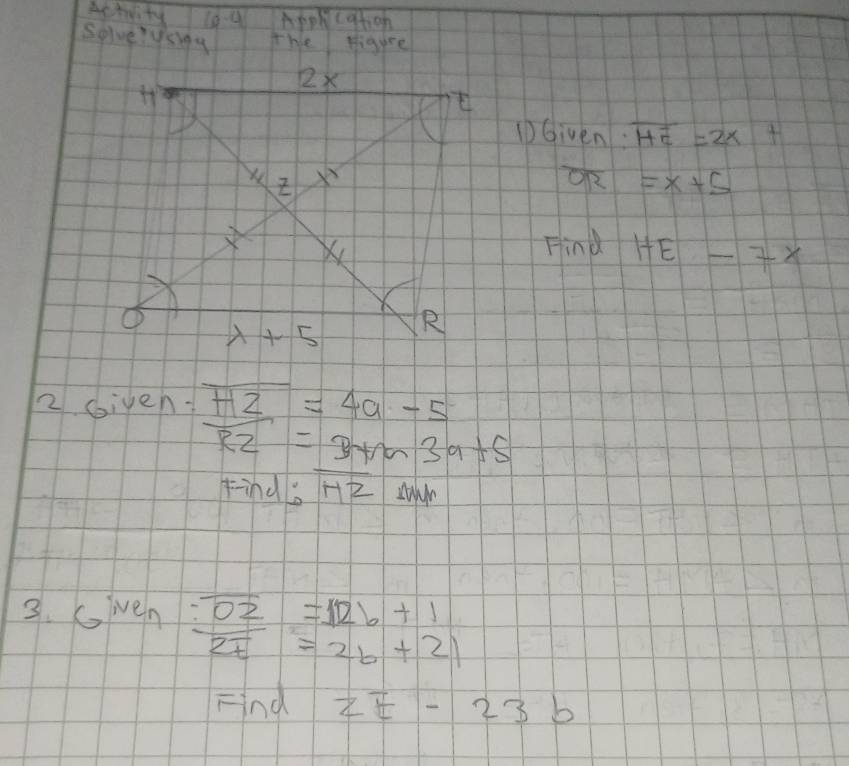 Activity 10.4 Application
Solve: Using the Figure
2x
H E
1) Given: HE = 2x +
OR = x + 5
Z
Find HE - 7x
O R
x + 5
2. Given: HZ = 4a - 5
RZ = 3a + 5
Find: HZ
3. Given: OZ = 12b + 1
ZE = 2b + 21
Find ZE - 23b